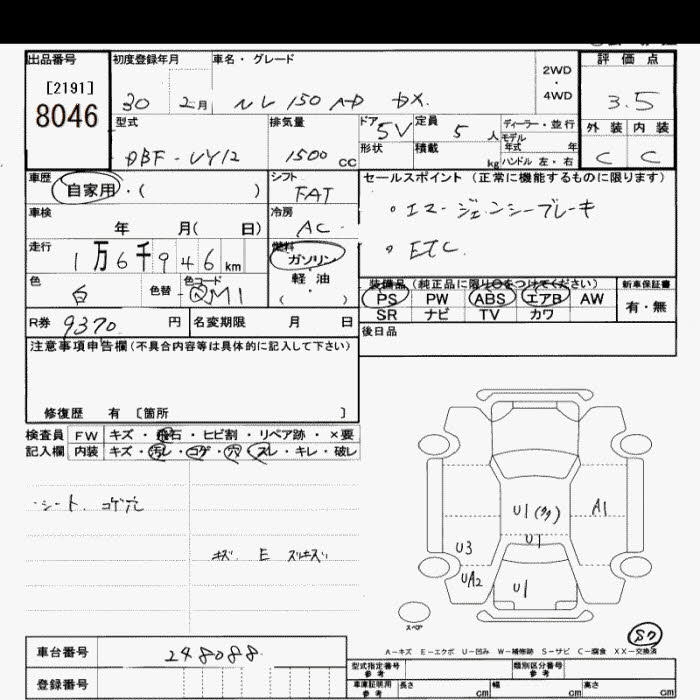 出品番号
[2191]
8046
初度登録年月
30 2月
車名・グレード
NV 150 AD DX.
2WD
・
4WD
評価点
3.5
型式
DBF-VY12
排気量
1500 cc
ドア 5V
定員 5 人
ディーラー・並行
モデル年式 年
形状
積載 kg
ハンドル 左・右
外装 内装
C C
車歴
自家用・( )
シフト
FAT
セールスポイント (正常に機能するものに限ります)
。エマージェンシーブレーキ
。ETC.
車検
年 月( 日)
冷房
AC.
走行
1万6千946 km
燃料
ガソリン
・
軽油
( ・ )
色
白
色替
色コード
QM1
装備品(純正品に限り○をつけてください)
PS PW ABS エアB AW
SR ナビ TV カワ
新車保証書
有・無
R券 9370 円
名変期限 月 日
後日品
注意事項申告欄(不具合内容等は具体的に記入して下さい)
修復歴 有 〔箇所 〕
検査員 FW キズ・飛石・ヒビ割・リペア跡・×要
記入欄 内装 キズ・汚レ・コゲ・穴・スレ・キレ・破レ
・シート、コゲ穴
キズ E スリキズ
U1(多)
A1
U1
U3
UA2
U1
スペア
S7
A-キズ E-エクボ U-凹み W-補修跡 S-サビ C-腐食 XX-交換済
車台番号 248088
登録番号
型式指定番号 参考
類別区分番号 参考
車庫証明用 参考
長さ cm
幅 cm
高さ cm